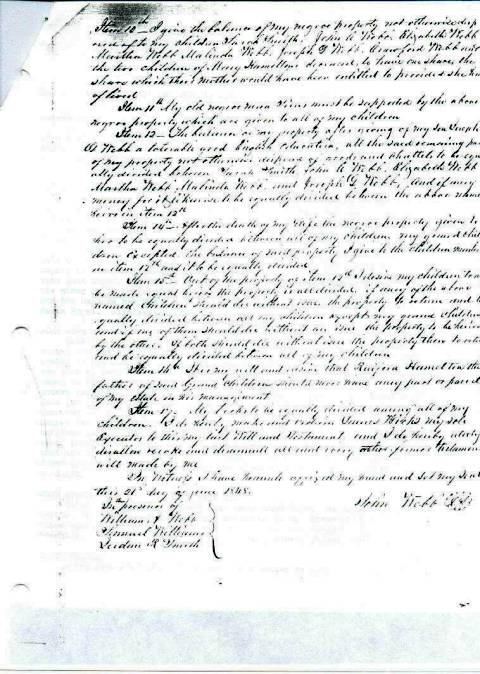 Item 10th I give the balance of my negro property not otherwise disp
osed of to my children Sarah Smith John C Webb Elizabeth Webb
Martha Webb Malinda Webb Joseph D Webb Crawford Webb and
the two children of Mary Hamilton deceased, to have one share, the
share which their mother would have been entitled to provided she had
lived
Item 11th My old negro man must be supported by the above
negro property which are given to all of my children
Item 12 The balance of my property after giving of my son Joseph
D Webb a tolerable good English education, all the said remaining part
of my property not otherwise disposed of goods and chattels to be equ
ally divided between Sarah Smith John C Webb Elizabeth Webb
Martha Webb Malinda Webb and Joseph D Webb, And if any
money for it likewise to be equally divided between the above named
heirs in item 12th
Item 14th After the death of my wife the negro property given to
her to be equally divided between all of my children, my grand chil
dren excepted the balance of said property I give to the children named
in item 12th and it to be equally divided
Item 15 Out of the property in item 12th I desire my children to
be made equal before the property is divided if any of the above
named Children should die without issue the property to return and be
equally divided between all my children except my grand children
and if one of them should die without an issue the property to be heired
by the other. If both should die without issue the property then to return
and be equally divided between all of my children
Item 16th It is my will and desire that Hamilton the
father of said Grand Children should never have any part or parcel
of my estate in his management
Item 17 My books to be equally divided among all of my
children. I do hereby make and ordain James Hicks my sole
Executor to this my last Will and Testament and I do hereby utterly
disallow revoke and disannull all and every other former testament
will made by me
In Witness I have hereunto affixed my hand and set my seal
this 21st day of June 1848.
John Webb
In presence of
William A Webb
Samuel Williams
R Smith